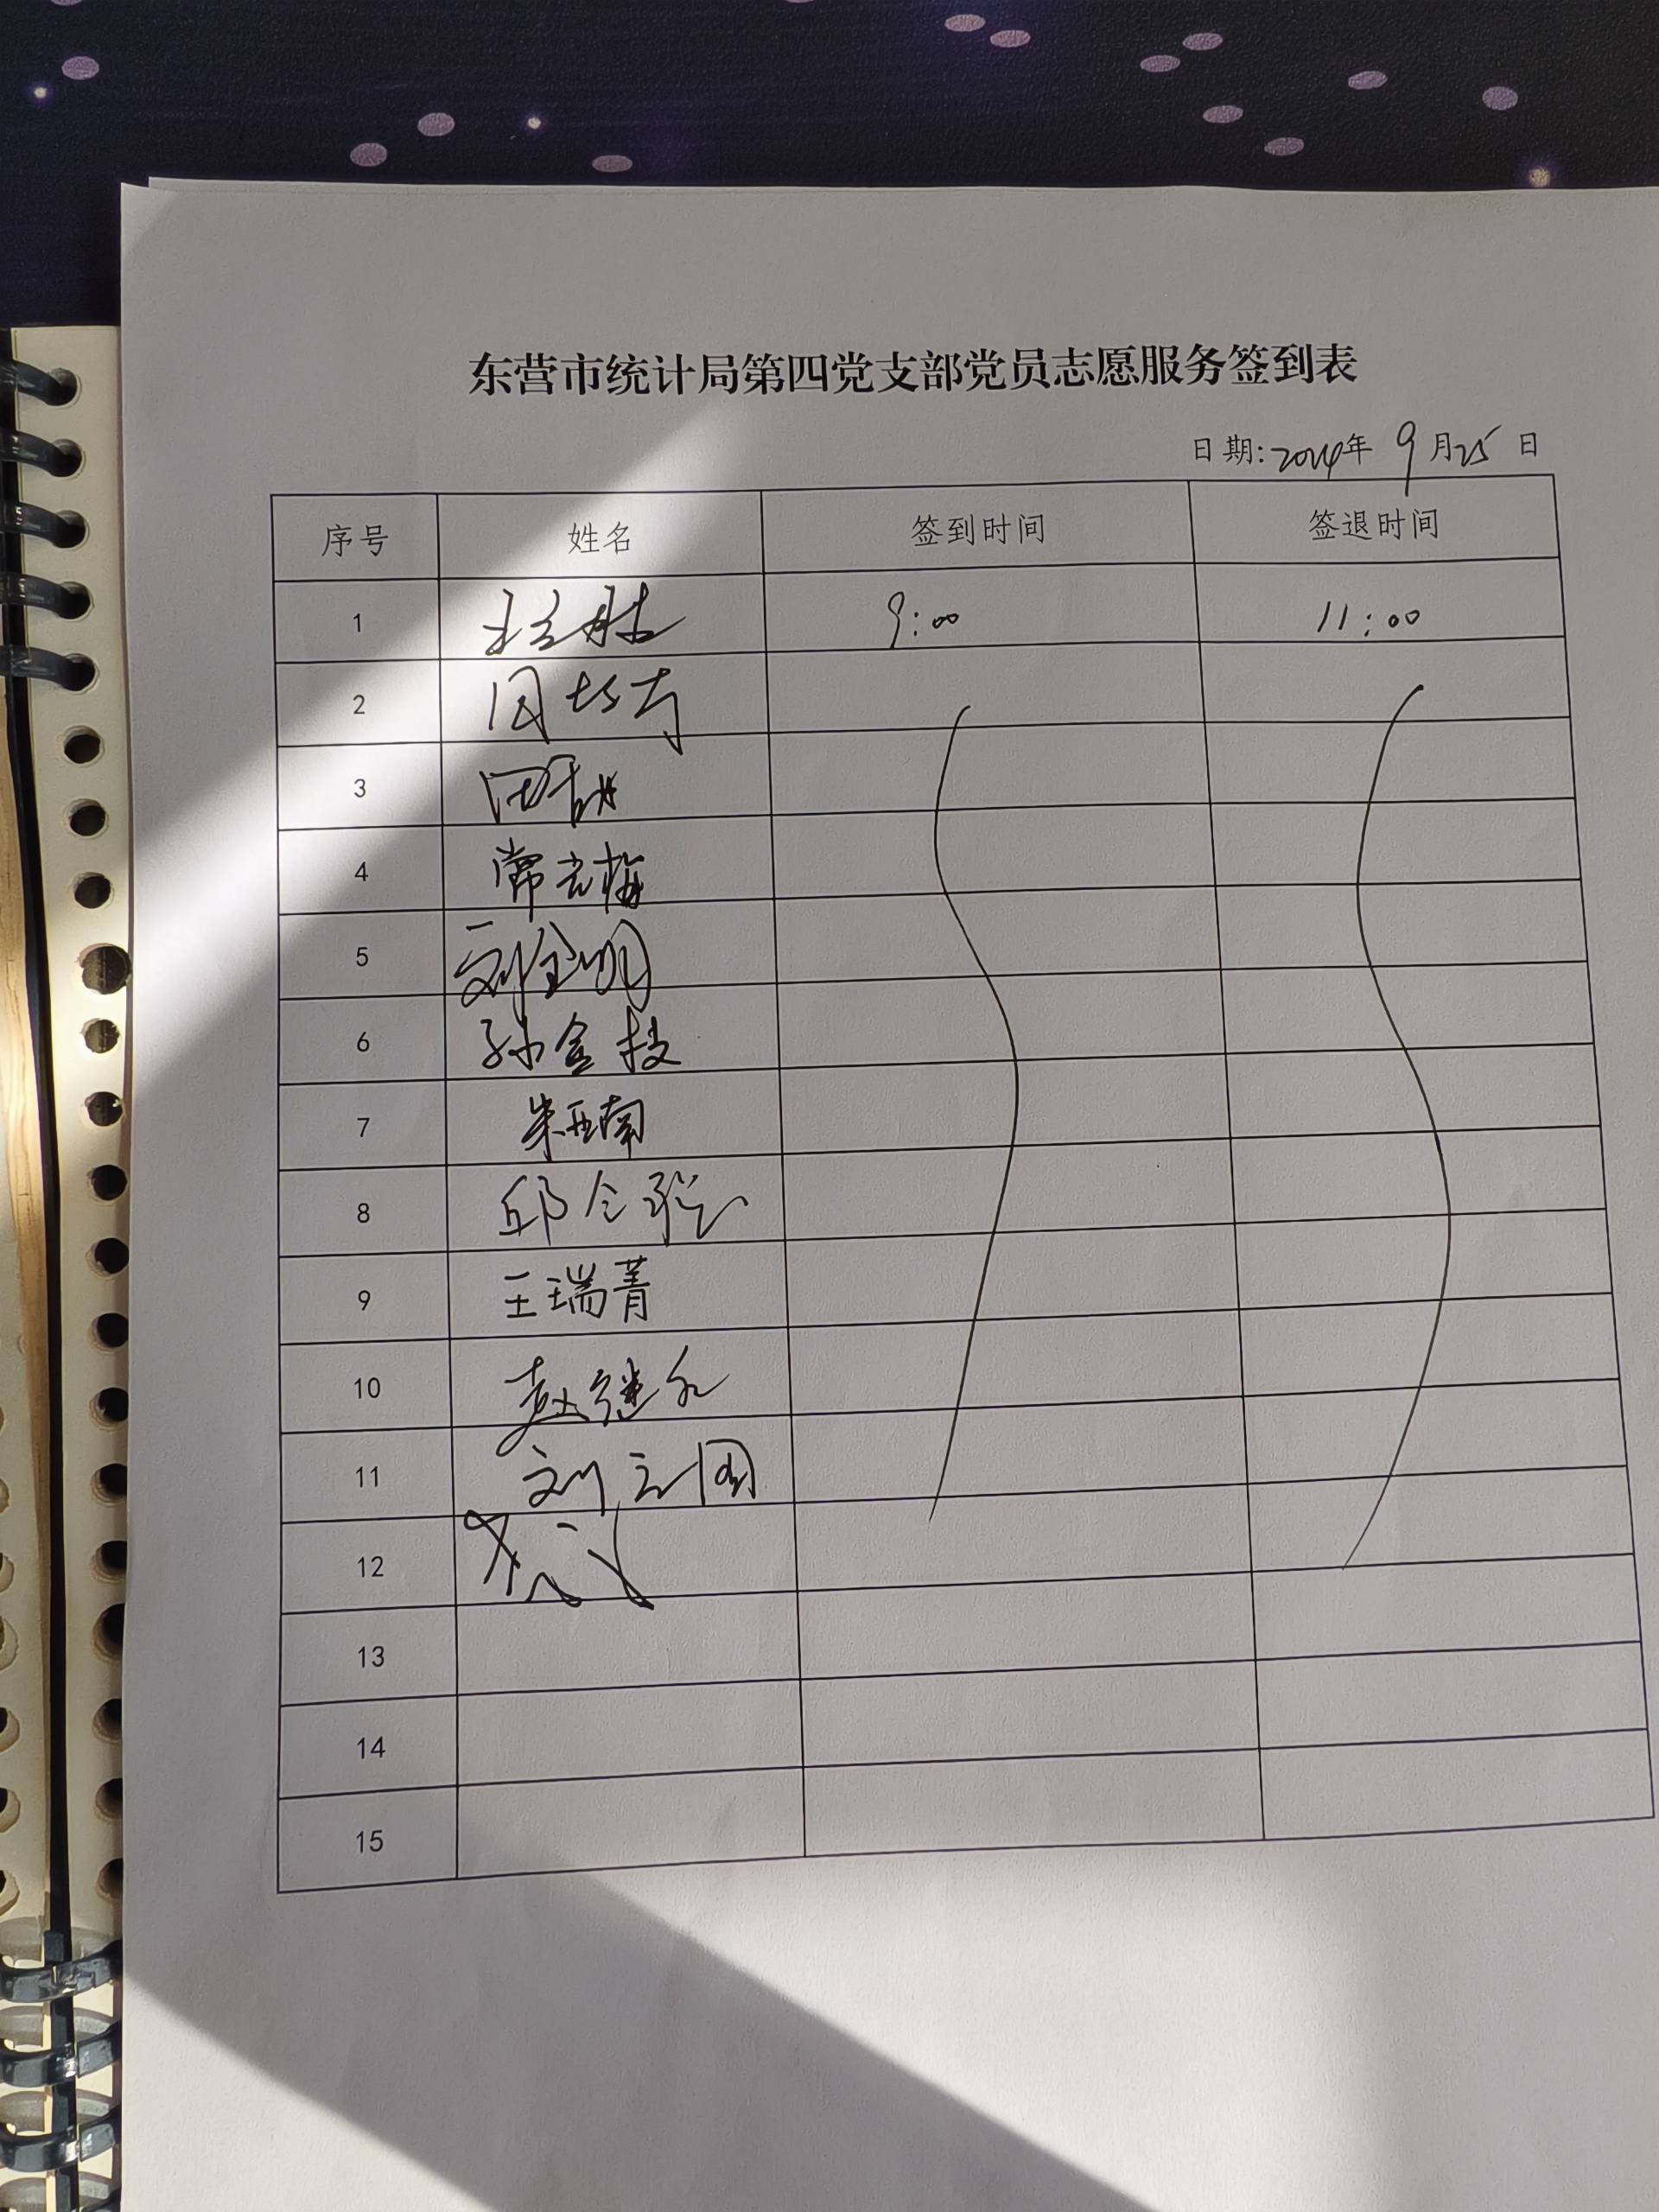 东营市统计局第四党支部党员志愿服务签到表
日期:2024年 9月25日
序号 姓名 签到时间 签退时间
1 9:00 11:00
2
3
4
5 刘金明
6 孙金枝
7 朱亚南
8 邱令
9 王瑞菁
10 赵继永
11 刘
12
13
14
15